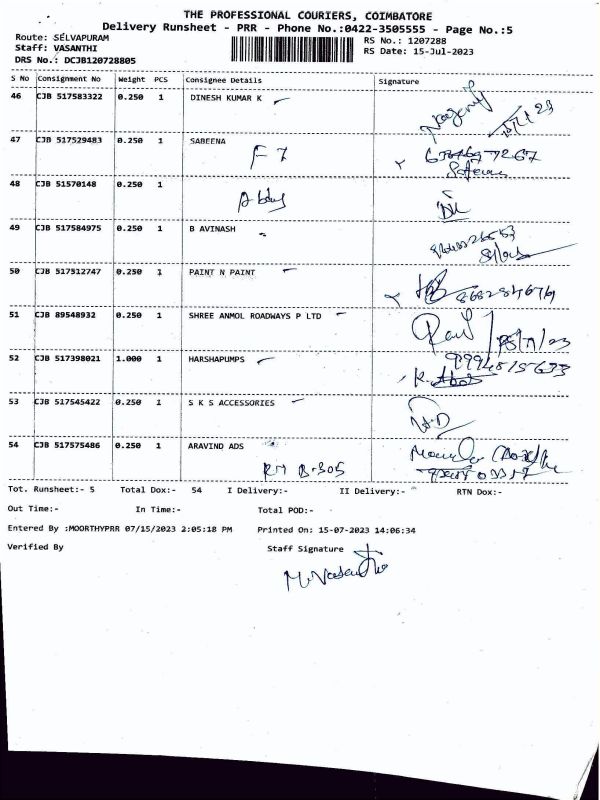 THE PROFESSIONAL COURIERS, COIMBATORE
Delivery Runsheet - PRR - Phone No.:0422-3505555 - Page No.:5
Route: SELVAPURAM
RS No.: 1207288
Staff: VASANTHI
RS Date: 15-Jul-2023
DRS No.: DCJB120728805
S No Consignment No Weight PCS Consignee Details Signature
46 CJB 517583322 0.250 1 DINESH KUMAR K
47 CJB 517529483 0.250 1 SABEENA
F 7
48 CJB 51570148 0.250 1
49 CJB 517584975 0.250 1 B AVINASH
50 CJB 517512747 0.250 1 PAINT N PAINT
51 CJB 89548932 0.250 1 SHREE ANMOL ROADWAYS P LTD
52 CJB 517398021 1.000 1 HARSHAPUMPS
53 CJB 517545422 0.250 1 S K S ACCESSORIES
54 CJB 517575486 0.250 1 ARAVIND ADS
B-305
Tot. Runsheet:- 5 Total Dox:- 54 I Delivery:- II Delivery:- RTN Dox:-
Out Time:- In Time:- Total POD:-
Entered By :MOORTHYPRR 07/15/2023 2:05:18 PM Printed On: 15-07-2023 14:06:34
Verified By Staff Signature
M. Vasantha